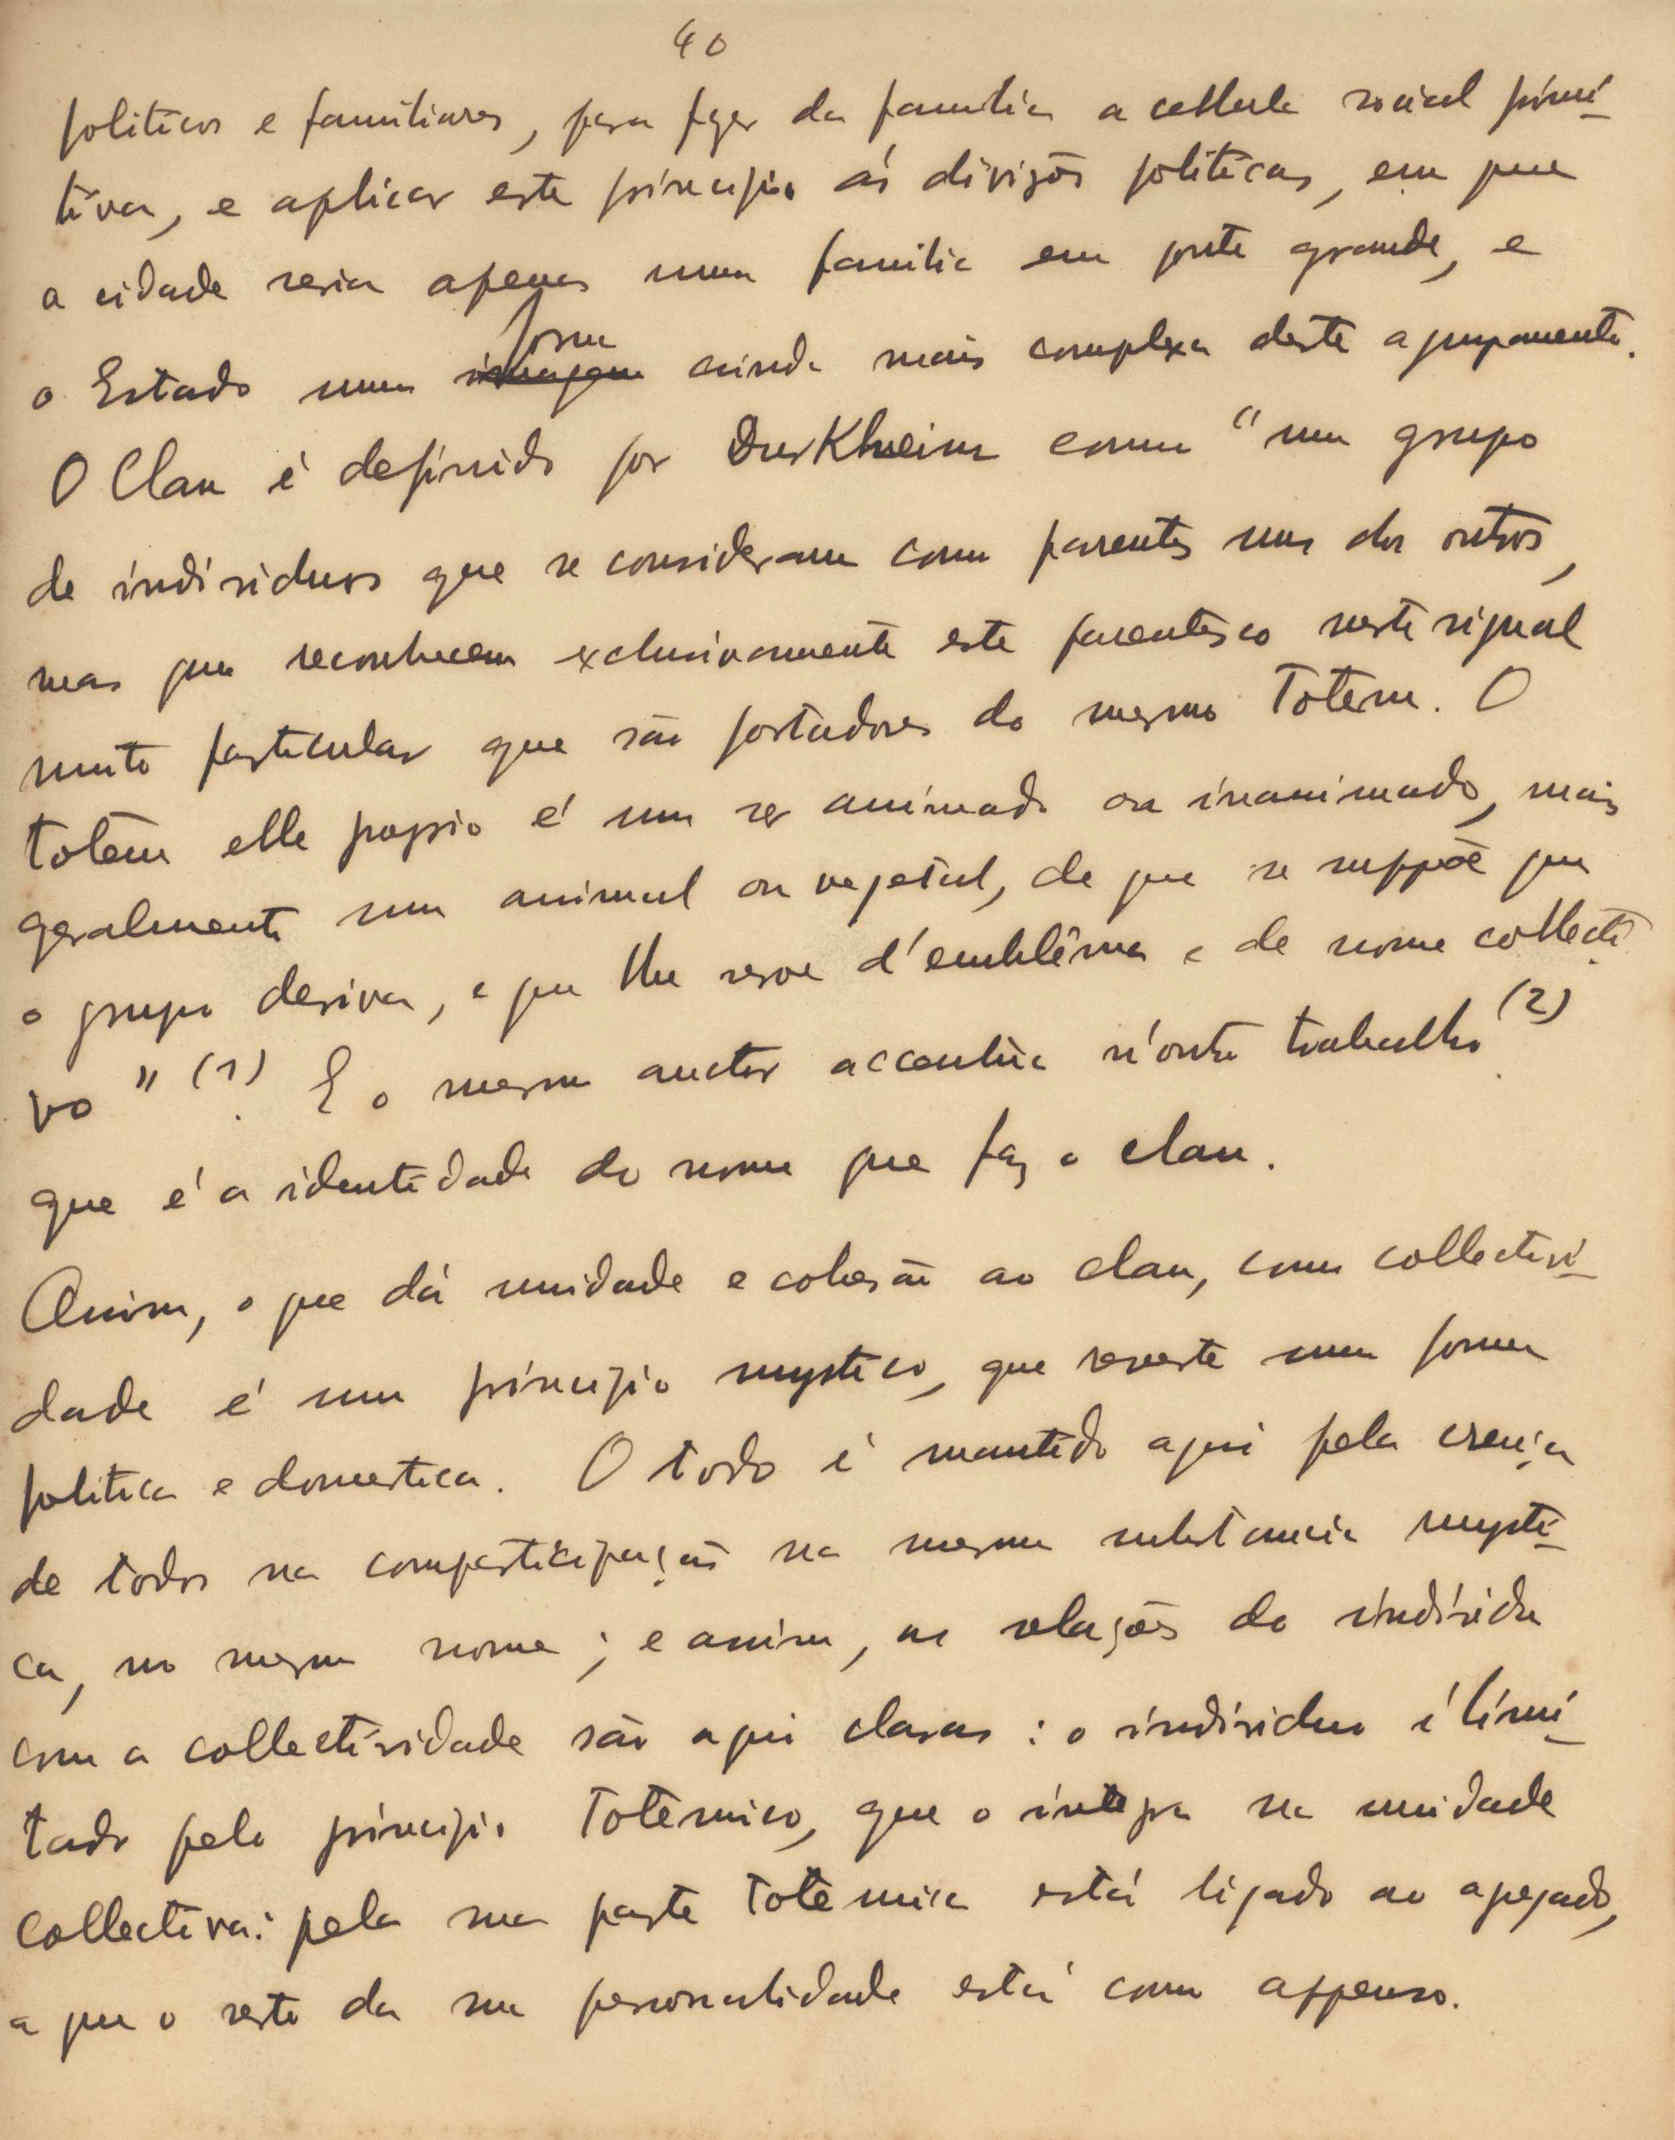 40
politicos e familiares, para fazer da familia a cellula social primi-
tiva, e aplicar este principio ás divizões politicas, em que
a cidade seria apenas uma familia em ponto grande, e
o Estado uma imagem forma ainda mais complexa deste agrupamento.
O Clan é definido por Durkheim como "um grupo
de individuos que se consideram como parentes uns dos outros,
mas que reconhecem exclusivamente este parentesco neste signal
muito particular que são portadores do mesmo Totem. O
totem elle proprio é um ser animado ou inanimado, mais
geralmente um animal ou vegetal, de que se suppõe que
o grupo deriva, e que lhe serve d'emblêma e de nome collecti-
vo" (1). E o mesmo auctor accentúa n'outro trabalho (2)
que é a identidade do nome que faz o clan.
Assim, o que dá unidade e cohesão ao clan, como collectivi-
dade é um principio mystico, que reveste uma forma
politica e domestica. O todo é mantido aqui pela crença
de todos na comparticipação na mesma substancia mysti-
ca, no mesmo nome; e assim, as relações do individuo
com a collectividade são aqui claras: o individuo é limi-
tado pelo principio Totêmico, que o integra na unidade
collectiva: pela sua parte totêmica está ligado ao agregado,
a que o resto da sua personalidade está como appenso.